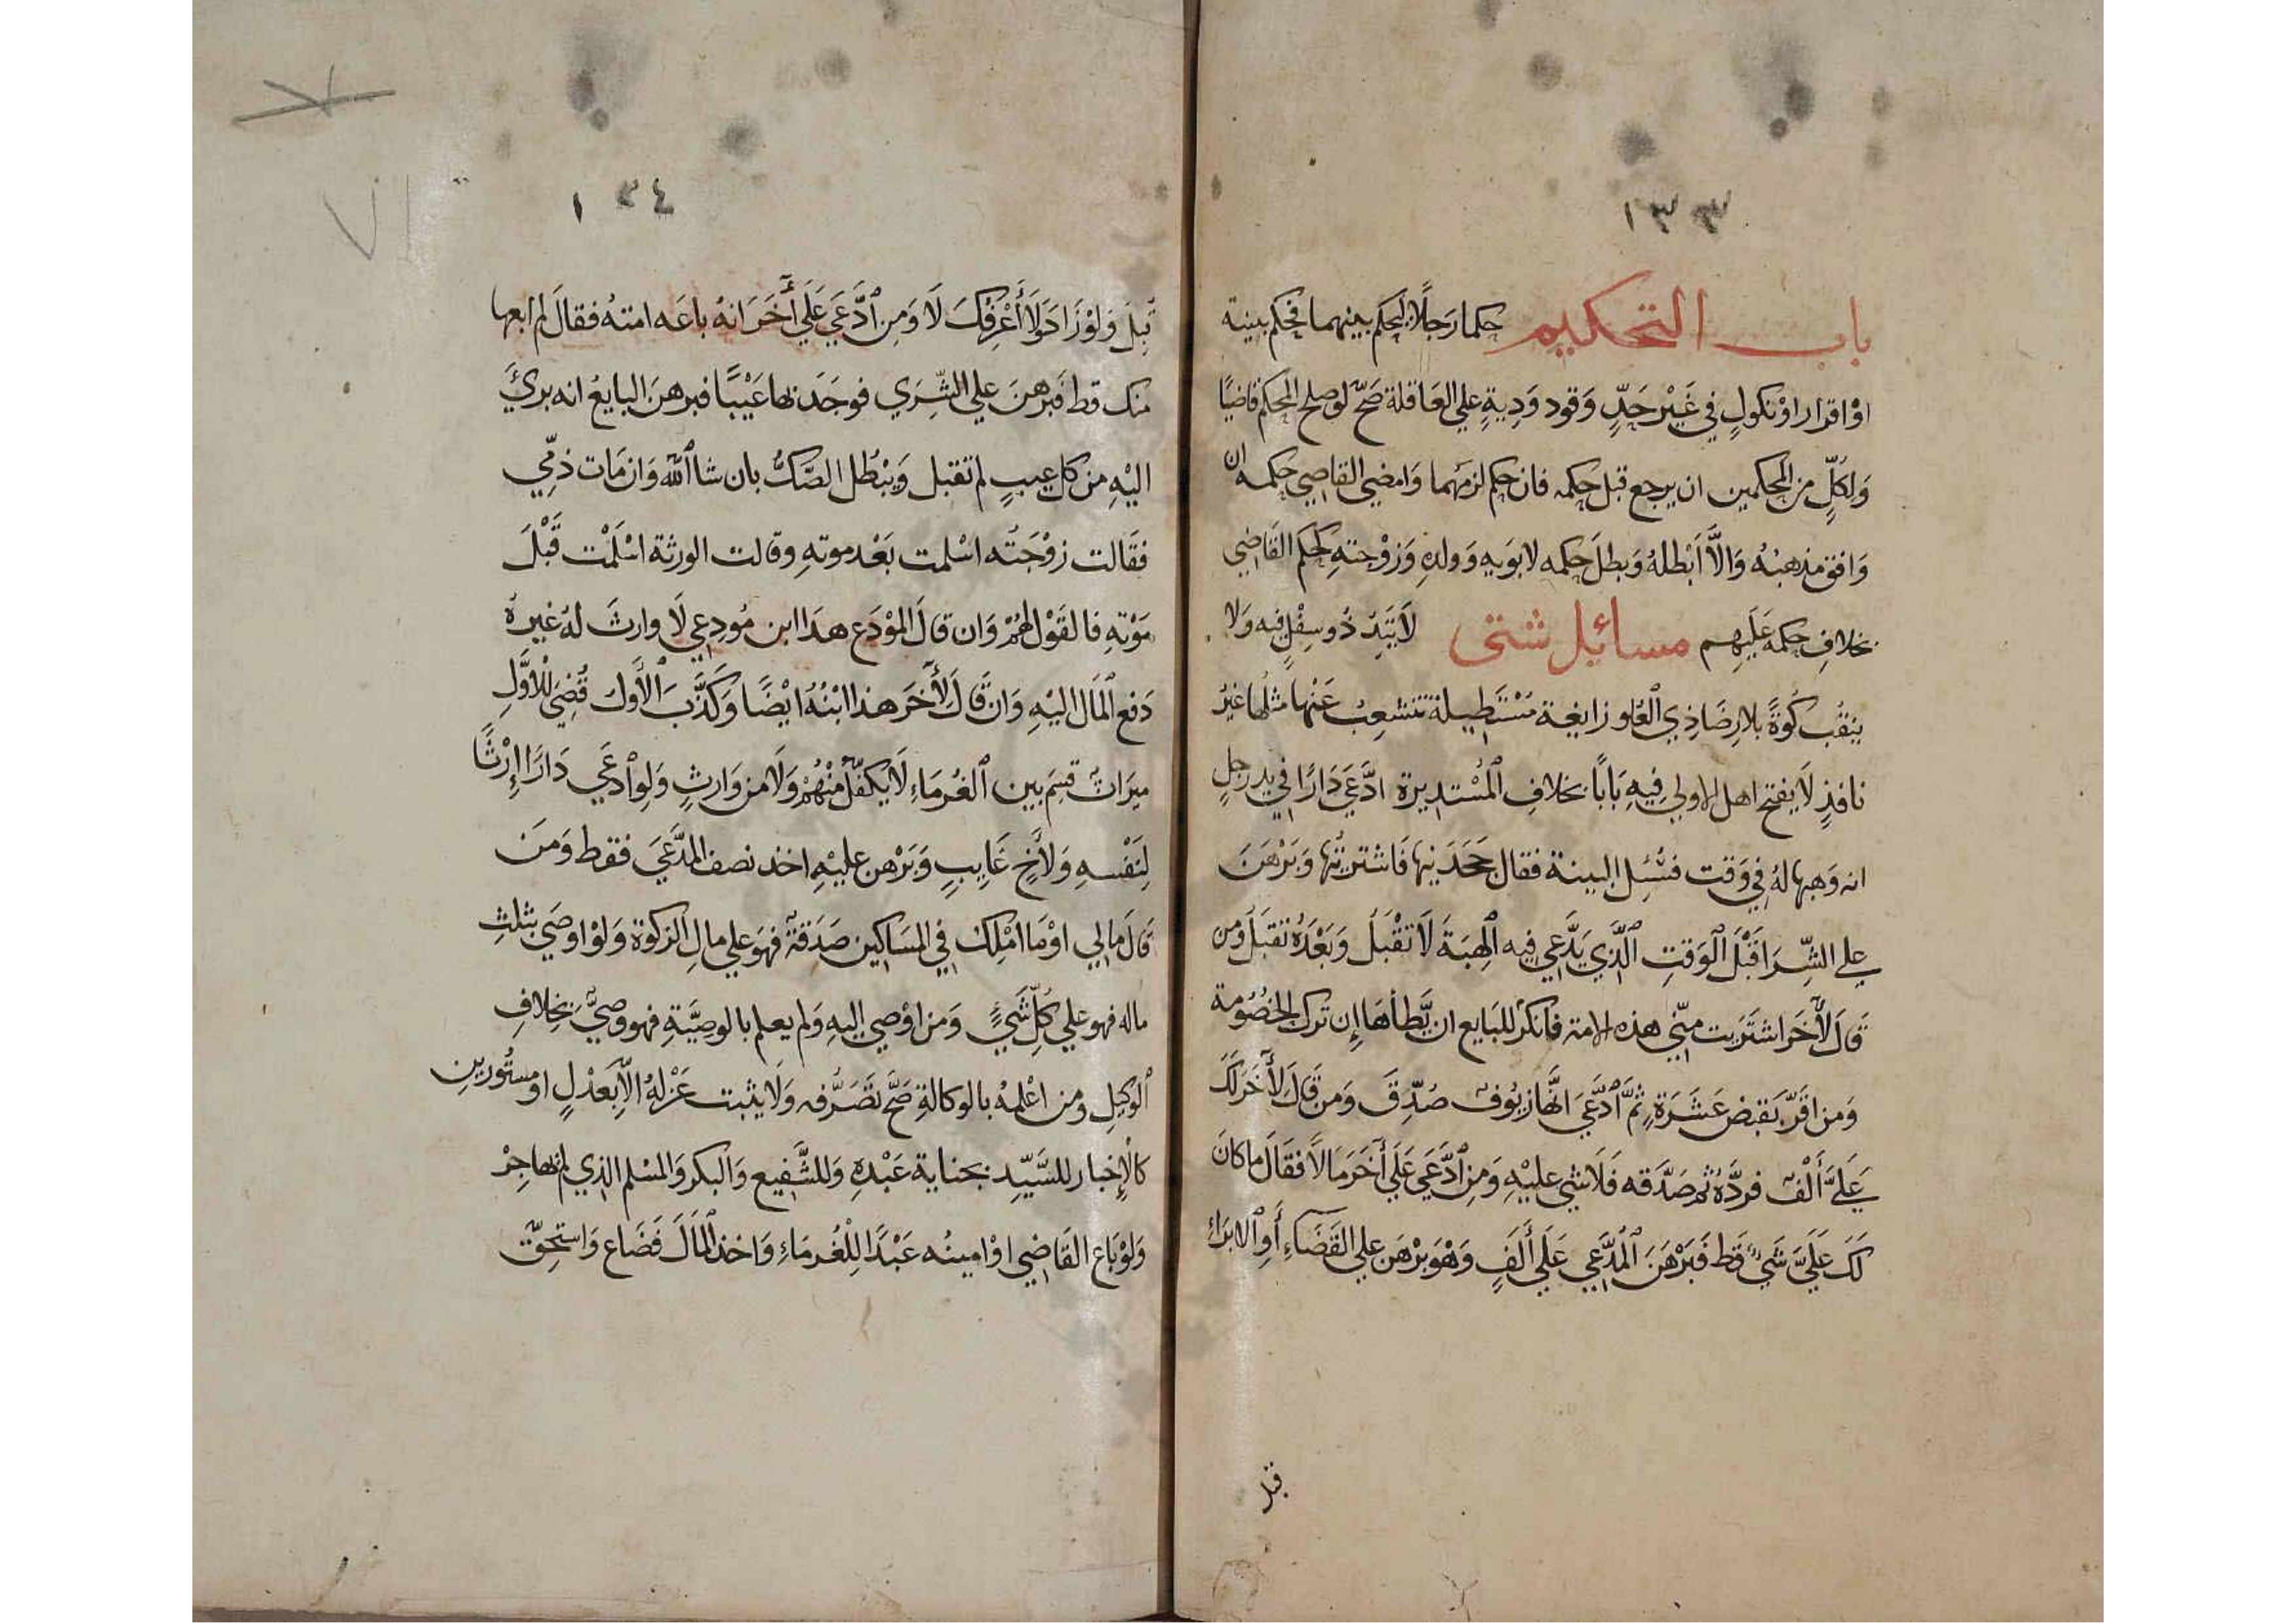 ١٣٣
باب التحكيم حكما رَجلًا ليحكم بينهما فحكم ببينة
اوْ اقرار اوْ نكولٍ في غَيْر حَدٍّ وَقود وَدِيةٍ علي العَاقلة صَحّ لوصلح المحكم قاضيًا
وَلِكُلٍّ من المحكمين ان يرجع قبل حكمه فان حكم لزمَهما وَامضي القاضِي حكمه ان
وَافق مذهبَهُ وَالَّا أَبْطلهُ وَبطلَ حكمه لابوَيه وَولدِهِ وَزوْجتهِ كحكم القَاضِي
بخلافِ حكمه عَلَيهم مسائل شتى لَا يَتِدُ ذُو سِفْلٍ فيه وَلا
ينقُب كُوةً بلا رِضَا ذِي الْعُلو زايغة مُسْتَطِيلة تتشعِبُ عَنْها مثلُها غيرُ
نافذٍ لَا يفتح اهل الاولي فِيهِ بَابًا بخلافِ الْمُسْتديرة ادَّعَي دَارًا في يد رجلٍ
انه وَهبها لهُ في وَقت فسُئِل البينة فقال جَحَدَنِيها فَاشتريتُها وَبَرْهَنَ
علي الشِّرَا قَبْلَ الْوَقتِ الَّذِي يَدَّعِي فيه الْهِبَةَ لَا تقْبَلُ وَبَعْدَهُ تقبَلُ وَمن
قَالَ لأَخَر اشتَرَيت مِنّي هذه الامة فانكر للبَايع ان يَّطأَهَا إِن تَرك الخصُومة
وَمن اقَرَّ بقبض عَشَرَةٍ ثُمَّ ادَّعَيَ انَّهَا زيُوفٌ صُدِّقَ وَمن قَالَ لأَخَرَ لَكَ
عَلَيَّ أَلْفٌ فردَّهُ ثم صَدَّقه فَلَا شي عليْهِ وَمنِ ادَّعَي عَلَي أَخَرَ مَالًا فقَالَ ما كَانَ
لَكَ عَلَيَّ شَيٌ قَط فَبَرْهَنَ الْمُدَّعِي عَلَي أَلَفٍ وَهْوَ بَرْهَن علي القَضَاءِ أَوِ الابَراءِ
١٣٤
قبِلَ وَلوْ زَادَ وَلَا أَعْرِفُكَ لَا وَمنِ ادَّعَي عَلَي أَخَرَ انهُ باعَه امتهُ فقالَ لم ابعها
منك قط فبَرهنَ علي الشِّرَي فوجَدَ بها عَيْبًا فبرهنَ البايعُ انه بريَ
اليْهِ من كل عيبٍ لم تقبل وَيَبْطُل الصّكُّ بان شا اللّه وَان مَات ذمّي
فقَالت زوْجَتُه اسْلمت بَعْد موتهِ وقالت الورثة اسْلَمْت قَبْلَ
مَوْتهِ فالقَوْل لهُمْ وَان قالَ المَوْدَع هذَا ابن مُودِعِي لَا وارثَ لهُ غيرهُ
دَفع الْمَال اليْهِ وَانْ قَالَ لأَخَرَ هذا ابْنُهُ ايْضًا وَكَذَّبَ الْأَوَّل قُضِيَ لِلْأَوَّلِ
ميرَاثٌ قسِمَ بين الْغُرمَاءِ لَا يكفّل مِنْهُمْ وَلَا من وَارثٍ وَلوِ ادعَي دَارًا إِرْثًا
لِنَفْسهِ وَلأَخٍ غَايبٍ وَبَرْهن عليْهِ اخذ نصف المدَّعَي فقط وَمَن
قَالَ مالِي اوْ مَا امْلِكُ في المسَاكين صَدَقةٌ فهوَ علي مالِ الزكوة وَلوْ اوصَي بثلثِ
ماله فهو علي كُلِّ شَيءٍ وَمَن اوْصي اليهِ وَلم يعلم بالوصِيَّةِ فهو وصيٌّ بخِلافِ
الْوكيل ومن اعْلمهُ بالوكالةِ صَحَّ تصَرُّفه وَلَا يثبت عَزْلهُ الّا بِعَدْلٍ او مستُورينِ
كالْإِخبار للسَّيّدِ بجناية عَبْدهِ وَللشَّفِيع وَالبكر وَالمسْلم الذِي لم يهاجِرْ
وَلوْ بَاع القَاضِي اوْ امينُه عَبْدًا لِلْغُرمَاءِ وَاخذ الْمَالَ فَضَاع وَاستحِقّ